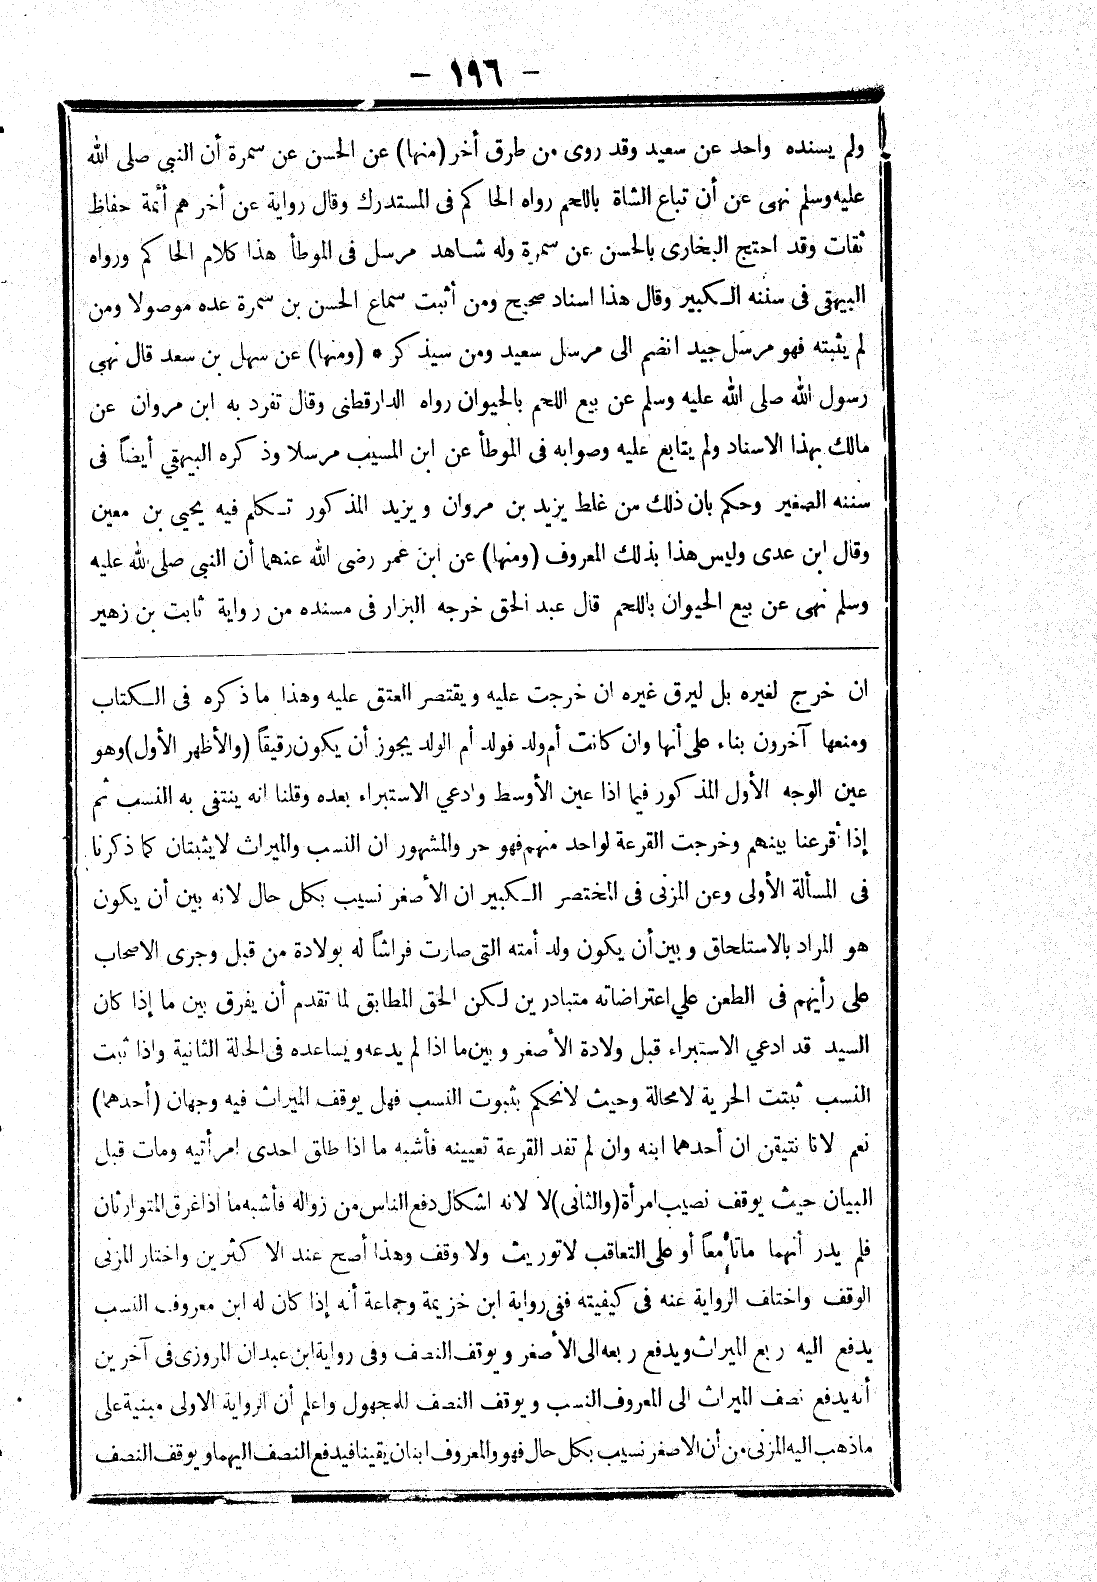 - ١٩٦ -
ولم يسنده واحد عن سعيد وقد روى من طرق أخر (منها) عن الحسن عن سمرة أن النبي صلى الله
عليه وسلم نهى عن أن تباع الشاة باللحم رواه الحاكم فى المستدرك وقال رواية عن أخر هم أئمة حفاظ
ثقات وقد احتج البخارى بالحسن عن سمرة وله شاهد مرسل فى الموطأ هذا كلام الحاكم ورواه
البيهقى فى سننه الكبير وقال هذا اسناد صحيح ومن أثبت سماع الحسن بن سمرة عده موصولا ومن
لم يثبته فهو مرسل جيد انضم الى مرسل سعيد ومن سيذكر * (ومنها) عن سهل بن سعد قال نهى
رسول الله صلى الله عليه وسلم عن بيع اللحم بالحيوان رواه الدارقطنى وقال تفرد به ابن مروان عن
مالك بهذا الاسناد ولم يتابع عليه وصوابه فى الموطأ عن ابن المسيب مرسلا وذكره البيهقي أيضاً فى
سننه الصغير وحكم بان ذلك من غلط يزيد بن مروان ويزيد المذكور تكلم فيه يحيى بن معين
وقال ابن عدى وليس هذا بذلك المعروف (ومنها) عن ابن عمر رضى الله عنهما أن النبي صلى الله عليه
وسلم نهى عن بيع الحيوان باللحم قال عبد الحق خرجه البزار فى مسنده من رواية ثابت بن زهير
ان خرج لغيره بل ليرق غيره ان خرجت عليه ويقتصر العتق عليه وهذا ما ذكره فى الكتاب
ومنعها آخرون بناء على أنها وان كانت أم ولد فولد أم الولد يجوز أن يكون رقيقاً (والأظهر الأول) وهو
عين الوجه الأول المذكور فيما اذا عين الأوسط وادعي الاستبراء بعده وقلنا انه ينتفى به النسب ثم
إذا أقرعنا بينهم وخرجت القرعة لواحد منهم فهو حر والمشهور ان النسب والميراث لا يثبتان كما ذكرنا
فى المسألة الأولى وعن المزنى فى المختصر الكبير ان الأصغر نسيب بكل حال لانه بين أن يكون
هو المراد بالاستلحاق وبين أن يكون ولد أمته التى صارت فراشاً له بولادة من قبل وجرى الاصحاب
على رأيهم فى الطعن علي اعتراضاته متبادرين لكن الحق المطابق لما تقدم أن يفرق بين ما إذا كان
السيد قد ادعي الاستبراء قبل ولادة الأصغر وبين ما اذا لم يدعه ويساعده فى الحالة الثانية واذا ثبت
النسب ثبتت الحرية لا محالة وحيث لا نحكم بثبوت النسب فهل يوقف الميراث فيه وجهان (أحدهما)
نعم لانا نتيقن ان أحدهما ابنه وان لم تفد القرعة تعيينه فأشبه ما اذا طلق احدى امرأتيه ومات قبل
البيان حيث يوقف نصيب امرأة (والثانى) لا لانه اشكال دفع الناس من زواله فأشبه ما اذا غرق المتوارثان
فلم يدر أنهما ماتا معاً أو على التعاقب لا توريث ولا وقف وهذا أصح عند الاكثرين واختار المزنى
الوقف واختلف الرواية عنه فى كيفيته ففى رواية ابن خزيمة وجماعة أنه إذا كان له ابن معروف النسب
يدفع اليه ربع الميراث ويدفع ربعه الى الأصغر ويوقف النصف وفى رواية ابن عبدان المروزى فى آخرين
أنه يدفع نصف الميراث الى المعروف النسب ويوقف النصف للمجهول واعلم أن الرواية الاولى مبنية على
ما ذهب اليه المزنى من أن الاصغر نسيب بكل حال فهو والمعروف ابنان يقينا فيدفع النصف اليهما ويوقف النصف